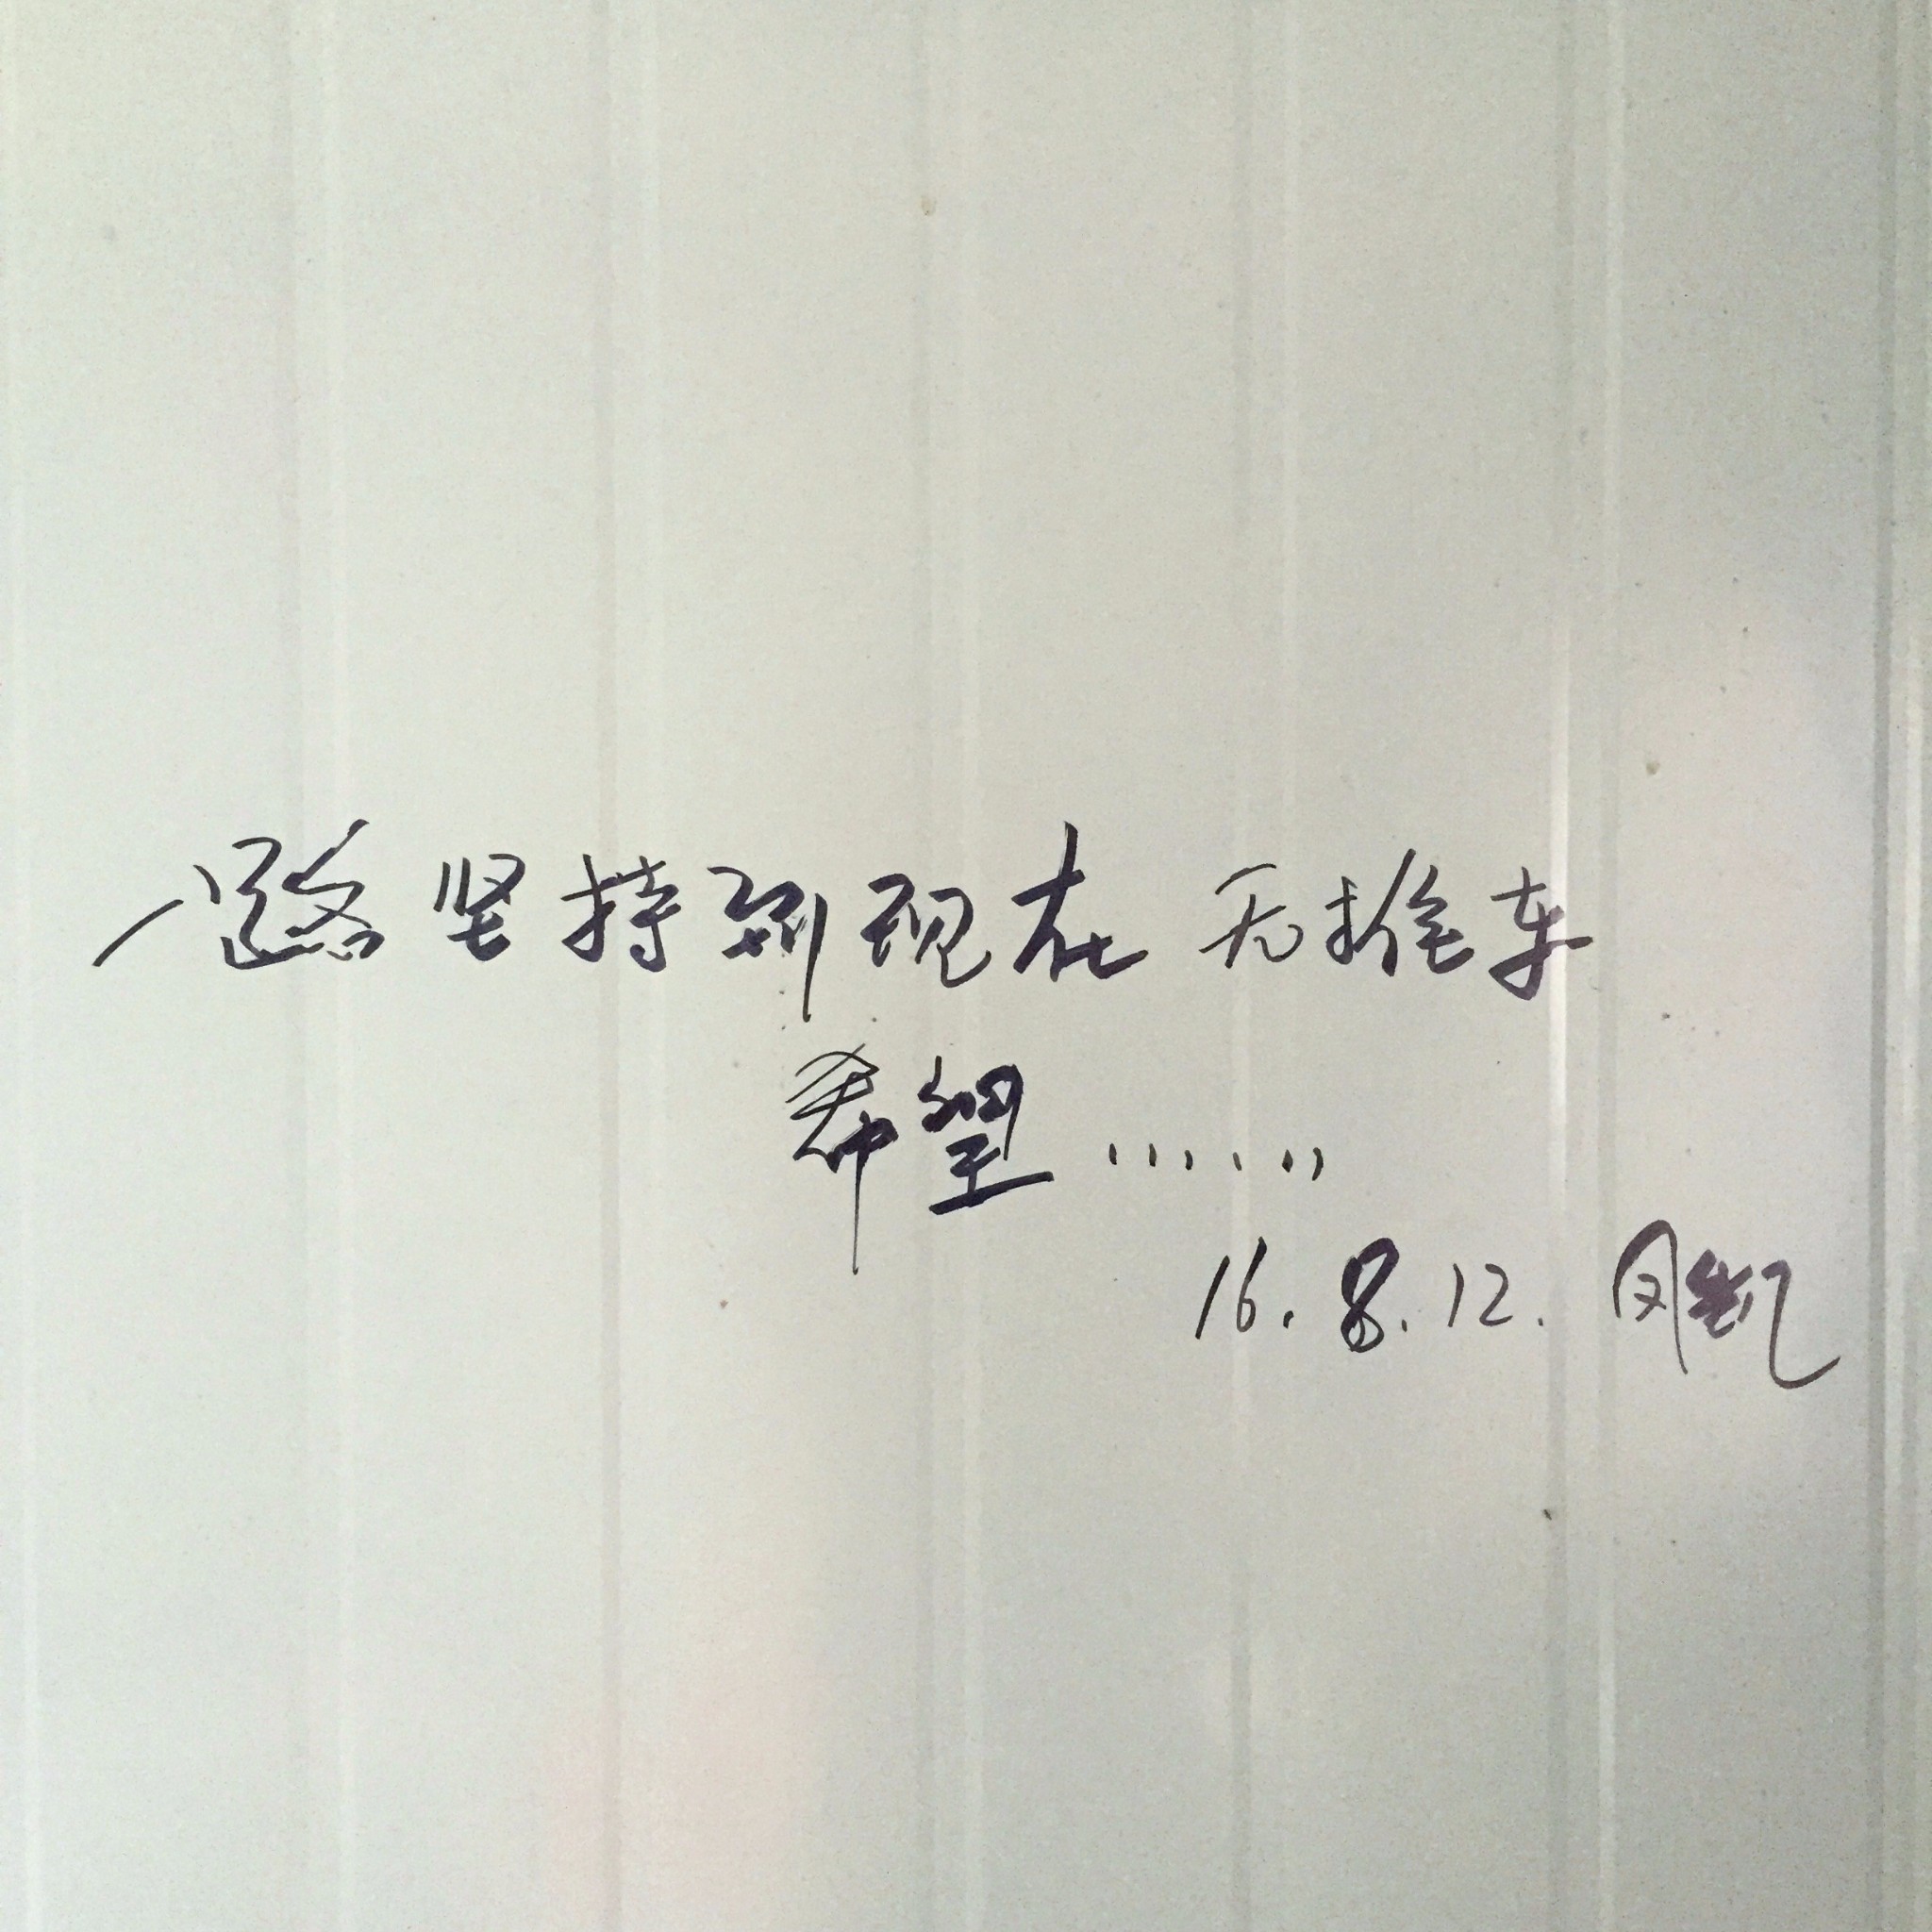 一路坚持到现在 无推车
希望……
16.8.12. 凤凯